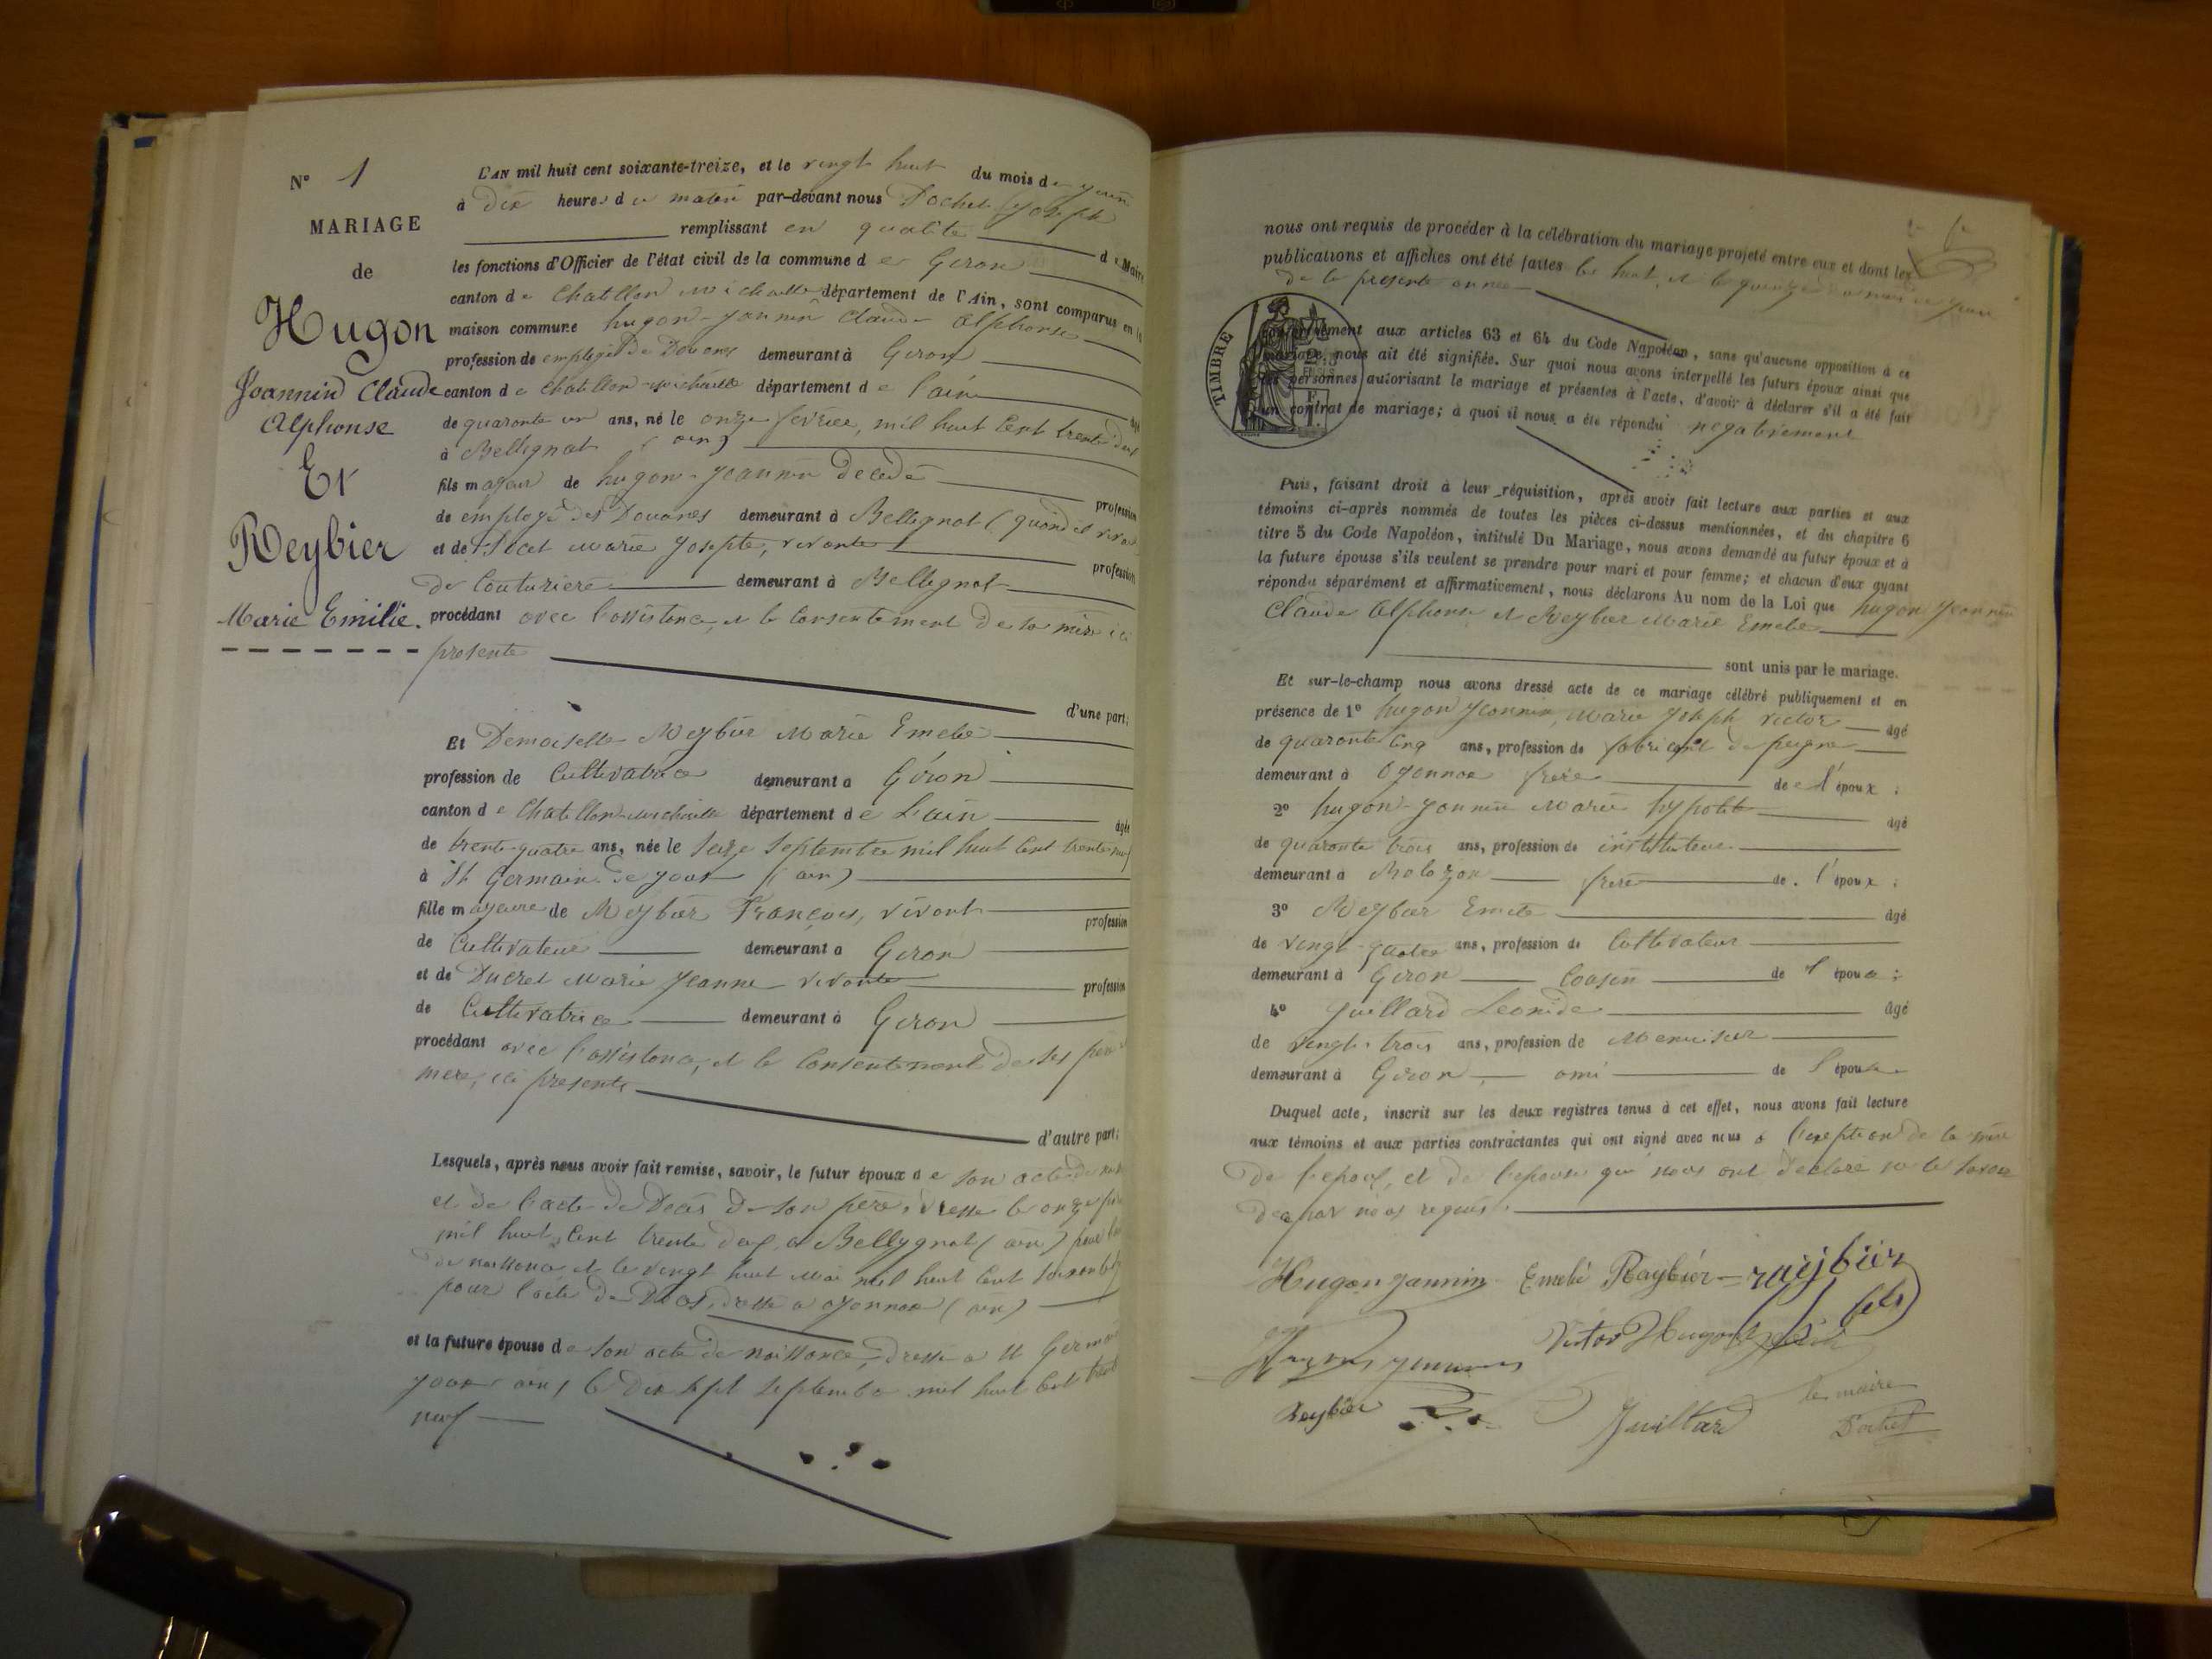 N° 1
MARIAGE
de
Hugon
Joannin Claude
Alphonse
Et
Reybier
Marie Emilie.
L'AN mil huit cent soixante-treize, et le vingt huit du mois de juin
à dix heures du matin par-devant nous Pochet Joseph
remplissant en qualité de Maire
les fonctions d'Officier de l'état civil de la commune de Giron
canton de Chatillon Michaille département de l'Ain, sont comparus en la
maison commune hugon-joannin Claude Alphonse
profession de employé de Douane demeurant à Giron
canton de Chatillon-Michaille département de l'ain
âgé
de quarante un ans, né le onze février mil huit Cent trente deux
à Bellignat (ain)
fils majeur de hugon-joannin décédé
profession
de employé des Douanes demeurant à Bellignat (quand il vivait
et de Marie Josephte, vivante
profession
de Couturière demeurant à Bellignat
procédant avec l'assistance et le Consentement de sa mère ici
presente
d'une part;
Et Demoiselle Reybier Marie Emelie
profession de Cultivatrice demeurant à Giron
canton de Chatillon-Michaille département de L'ain
âgée
de trente-quatre ans, née le Seize Septembre mil huit Cent trente neuf
à St Germain de joux (ain)
fille majeure de Reybier François, vivant
profession
de Cultivateur demeurant à Giron
et de Ducret Marie Jeanne vivante profession
de Cultivatrice demeurant à Giron
procédant avec l'assistance, et le Consentement de ses père et
mere, ici presents
d'autre part;
Lesquels, après nous avoir fait remise, savoir, le futur époux de son acte de
et de l'acte de Décès de son père, dressé le onze
mil huit Cent trente deux, à Bellygnat (ain) pour
de naissance et le vingt huit Mai mil huit Cent
pour l'acte de Décès, dressé a oyonnax (ain)
et la future épouse de son acte de naissance, dressé a St Germain
joux (ain) le dix sept septembre mil huit Cent trente
neuf
nous ont requis de procéder à la célébration du mariage projeté entre eux et dont les
publications et affiches ont été faites les huit, et le quinze du mois de juin
de la presente année
TIMBRE
conformément aux articles 63 et 64 du Code Napoléon, sans qu'aucune opposition à ce
mariage nous ait été signifiée. Sur quoi nous avons interpellé les futurs époux ainsi que
les personnes autorisant le mariage et présentes à l'acte, d'avoir à déclarer s'il a été fait
un contrat de mariage; à quoi il nous a été répondu négativement
Puis, faisant droit à leur réquisition, après avoir fait lecture aux parties et aux
témoins ci-après nommés de toutes les pièces ci-dessus mentionnées, et du chapitre 6
titre 5 du Code Napoléon, intitulé Du Mariage, nous avons demandé au futur époux et à
la future épouse s'ils veulent se prendre pour mari et pour femme; et chacun d'eux ayant
répondu séparément et affirmativement, nous déclarons Au nom de la Loi que hugon Joannin
Claude Alphonse et Reybier Marie Emelie
sont unis par le mariage.
Et sur-le-champ nous avons dressé acte de ce mariage célébré publiquement et en
présence de 1° hugon Joannin, Marie Joseph victor âgé
de quarante Cinq ans, profession de fabricant de peigne
demeurant à Oyonnax frère de l'époux;
2° hugon-Joannin Marie hypolite âgé
de quarante trois ans, profession de instituteur
demeurant à Bolozon frère de l'époux;
3° Reybier Emile âgé
de vingt-quatre ans, profession de Cultivateur
demeurant à Giron Cousin de l'épouse;
4° Juillard Leonide âgé
de vingt-trois ans, profession de Menuisier
demeurant à Giron, ami de l'épouse
Duquel acte, inscrit sur les deux registres tenus à cet effet, nous avons fait lecture
aux témoins et aux parties contractantes qui ont signé avec nous à l'exeption de la mère
de l'epoux, et de l'epouse qui nous ont déclaré ne le savoir
de par nous requis.
Hugon Jannin Emelie Raybier raybier
fils
Victor Hugon
Reybier
Juillard
le maire
Pochet